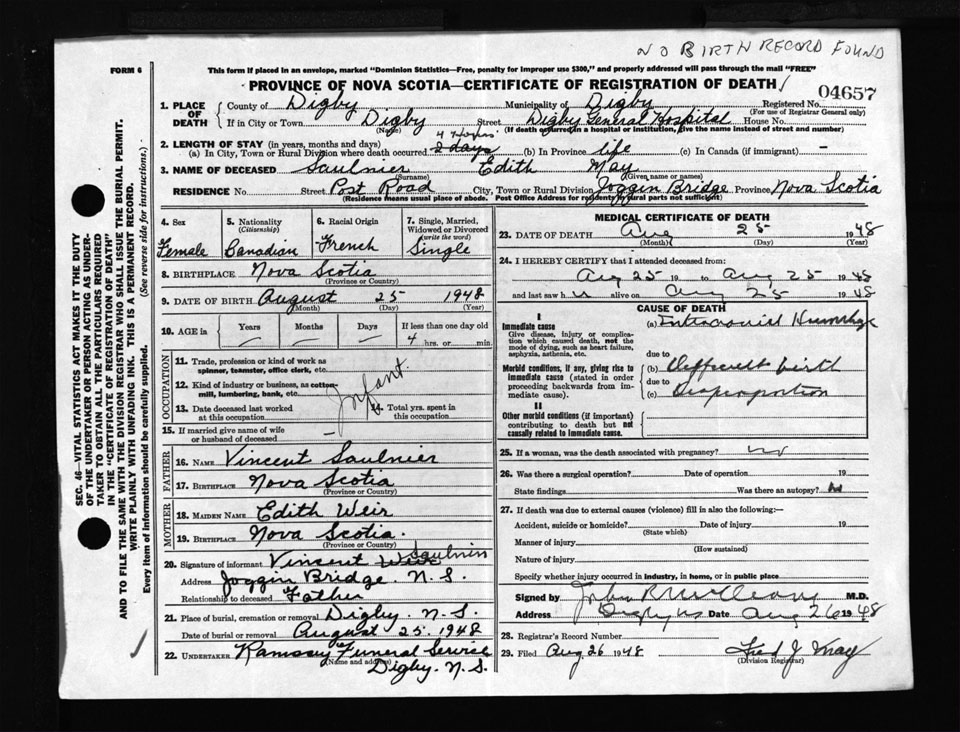 NO BIRTH RECORD FOUND
FORM 6
This form if placed in an envelope, marked "Dominion Statistics—Free, penalty for improper use $300," and properly addressed will pass through the mail "FREE"
PROVINCE OF NOVA SCOTIA—CERTIFICATE OF REGISTRATION OF DEATH
04657
1. PLACE OF DEATH
County of Digby Municipality of Digby Registered No.
(For use of Registrar General only)
If in City or Town Digby Street Digby General Hospital House No.
(Name) (If death occurred in a hospital or institution, give the name instead of street and number)
2. LENGTH OF STAY (in years, months and days)
4 hours
(a) In City, Town or Rural Division where death occurred 2 days (b) In Province life (c) In Canada (if immigrant) —
3. NAME OF DECEASED Saulnier Edith May
(Surname) (Given name or names)
RESIDENCE No. Street Post Road City, Town or Rural Division Joggin Bridge Province Nova Scotia
(Residence means usual place of abode. Post Office Address for residents in rural parts not sufficient)
4. Sex
Female
5. Nationality (Citizenship)
Canadian
6. Racial Origin
French
7. Single, Married, Widowed or Divorced (write the word)
Single
8. BIRTHPLACE Nova Scotia
(Province or Country)
9. DATE OF BIRTH August 25 1948
(Month) (Day) (Year)
10. AGE in Years Months Days If less than one day old
4 hrs. or min.
OCCUPATION
11. Trade, profession or kind of work as spinner, teamster, office clerk, etc.
12. Kind of industry or business, as cotton-mill, lumbering, bank, etc.
Infant.
13. Date deceased last worked at this occupation
14. Total yrs. spent in this occupation
15. If married give name of wife or husband of deceased —
FATHER
16. NAME Vincent Saulnier
17. BIRTHPLACE Nova Scotia
(Province or Country)
MOTHER
18. MAIDEN NAME Edith Weir
19. BIRTHPLACE Nova Scotia.
(Province or Country)
20. Signature of informant Vincent Weir Saulnier
Address Joggin Bridge. N.S.
Relationship to deceased Father
21. Place of burial, cremation or removal Digby. N.S.
Date of burial or removal August 25. 1948
22. UNDERTAKER Ramsay Funeral Service
(Name and address)
Digby. N.S.
MEDICAL CERTIFICATE OF DEATH
23. DATE OF DEATH Aug 25 1948
(Month) (Day) (Year)
24. I HEREBY CERTIFY that I attended deceased from:
Aug 25 19 to Aug 25 1948
and last saw h alive on Aug 25 1948
CAUSE OF DEATH
I
Immediate cause
Give disease, injury or complication which caused death, not the mode of dying, such as heart failure, asphyxia, asthenia, etc.
(a) Intracranial Hemorrhage
due to
Morbid conditions, if any, giving rise to immediate cause (stated in order proceeding backwards from immediate cause).
(b) Difficult birth
due to
(c) Disproportion
II
Other morbid conditions (if important) contributing to death but not causally related to immediate cause.
25. If a woman, was the death associated with pregnancy? no
26. Was there a surgical operation? Date of operation 19
State findings Was there an autopsy? no
27. If death was due to external causes (violence) fill in also the following:—
Accident, suicide or homicide? Date of injury 19
(State which)
Manner of injury
(How sustained)
Nature of injury
Specify whether injury occurred in industry, in home, or in public place
Signed by M.D.
Address Digby NS Date Aug 26 1948
28. Registrar's Record Number
29. Filed Aug. 26 1948 Fred J. May
(Division Registrar)
SEC. 46—VITAL STATISTICS ACT MAKES IT THE DUTY
OF THE UNDERTAKER OR PERSON ACTING AS UNDER-
TAKER TO OBTAIN ALL THE PARTICULARS REQUIRED
IN THE "CERTIFICATE OF REGISTRATION OF DEATH"
AND TO FILE THE SAME WITH THE DIVISION REGISTRAR WHO SHALL ISSUE THE BURIAL PERMIT.
WRITE PLAINLY WITH UNFADING INK. THIS IS A PERMANENT RECORD.
Every item of information should be carefully supplied. (See reverse side for instructions.)